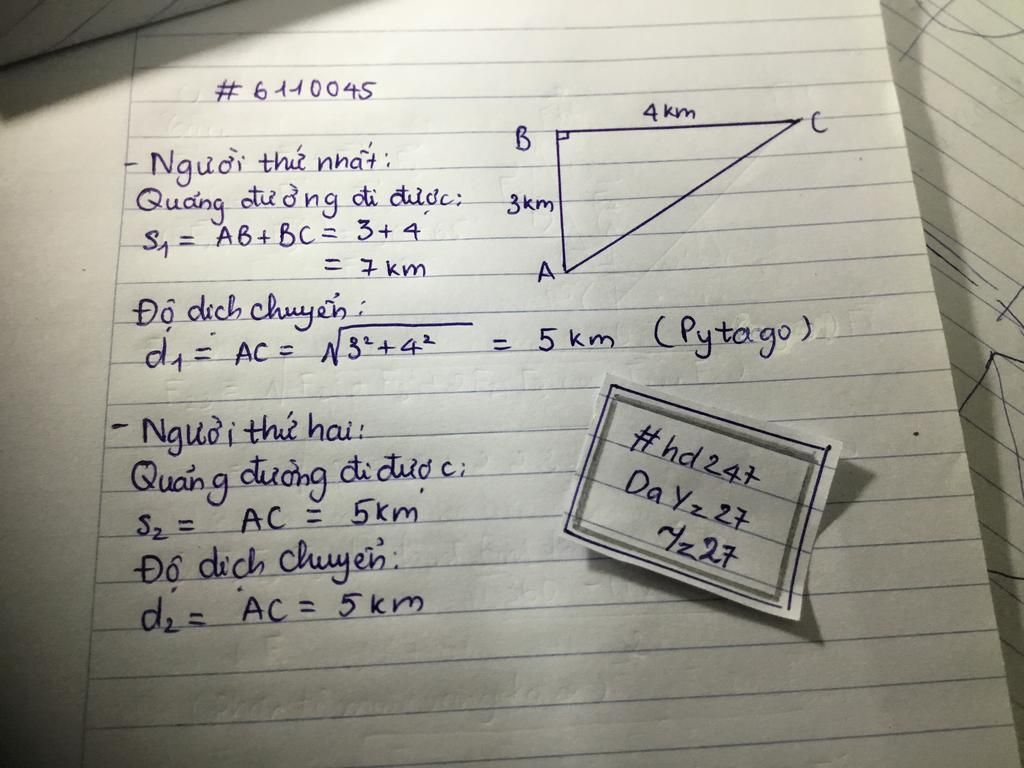 # 6110045
- Người thứ nhất:
Quãng đường đi được:
S₁ = AB + BC = 3 + 4
= 7 km
Độ dịch chuyển:
d₁ = AC = √3² + 4² = 5 km (Pytago)
B
4 km
C
3 km
A
- Người thứ hai:
Quãng đường đi được:
S₂ = AC = 5 km
Độ dịch chuyển:
d₂ = AC = 5 km
#hd247
DaYz27